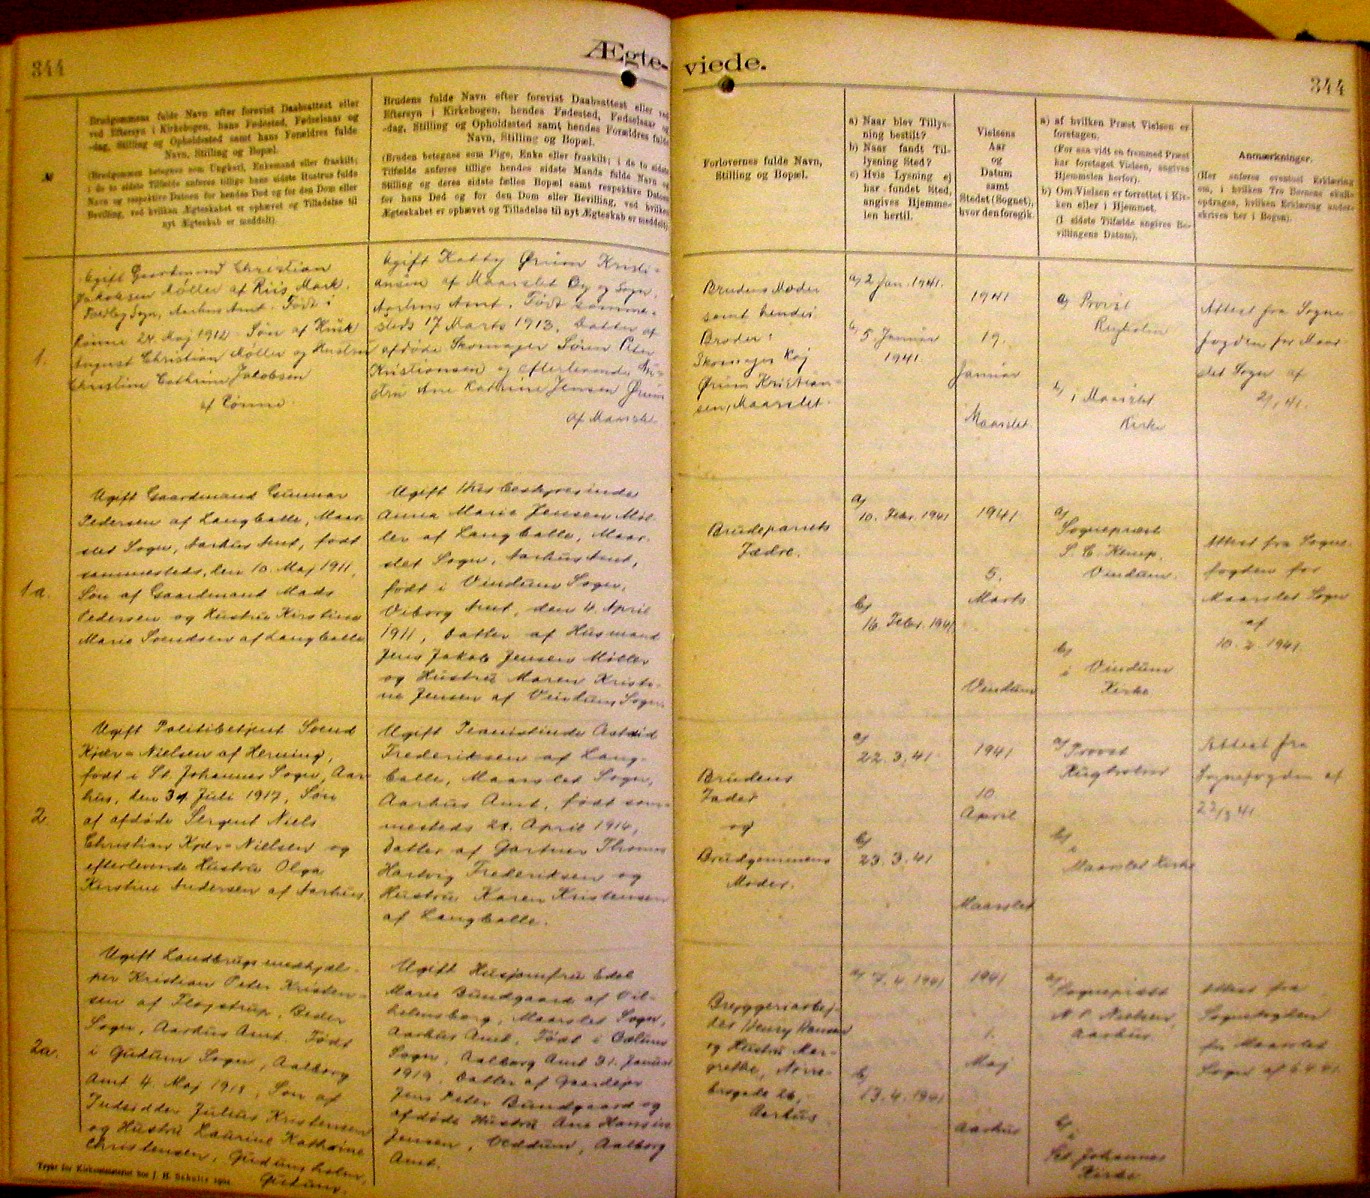 344
Ægte-
viede.
344
№
Brudgommens fulde Navn efter forevist Daabsattest eller
ved Eftersyn i Kirkebogen, hans Fødested, Fødselsaar og
-dag, Stilling og Opholdssted samt hans Forældres fulde
Navn, Stilling og Bopæl.
(Brudgommen betegnes som Ungkarl, Enkemand eller fraskilt;
i de to sidste Tilfælde anføres tillige hans sidste Hustrus fulde
Navn og respektive Datoen for hendes Død og for den Dom eller
Bevilling, ved hvilken Ægteskabet er ophævet og Tilladelse til
nyt Ægteskab er meddelt)
Brudens fulde Navn efter forevist Daabsattest eller ved
Eftersyn i Kirkebogen, hendes Fødested, Fødselsaar og
-dag, Stilling og Opholdssted samt hendes Forældres fulde
Navn, Stilling og Bopæl.
(Bruden betegnes som Pige, Enke eller fraskilt; i de to sidste
Tilfælde anføres tillige hendes sidste Mands fulde Navn og
Stilling og deres sidste fælles Bopæl samt respektive Datoen
for hans Død og for den Dom eller Bevilling, ved hvilken
Ægteskabet er ophævet og Tilladelse til nyt Ægteskab er meddelt)
Forlovernes fulde Navn,
Stilling og Bopæl.
a) Naar blev Tillys-
ning bestilt?
b) Naar fandt Til-
lysning Sted?
c) Hvis Lysning ej
har fundet Sted,
angives Hjemme-
len hertil.
Vielsens
Aar
og
Datum
samt
Stedet (Sognet),
hvor den foregik.
a) af hvilken Præst Vielsen er
foretagen.
(For saa vidt en fremmed Præst
har foretaget Vielsen, angives
Hjemmelen herfor).
b) Om Vielsen er forrettet i Kir-
ken eller i Hjemmet.
(I sidste Tilfælde angives Be-
villingens Datum).
Anmærkninger.
(Her anføres eventuel Erklæring
om, i hvilken Tro Børnene skulle
opdrages, hvilken Erklæring under-
skrives her i Bogen).
1.
Ugift Gaardmand Christian
Jakobsen Møller af Riis Mark,
Sogn, Aarhus Amt. Født i
Lønne 24 Maj 1912. Søn af
August Christian Møller og Hustru
Christine Cathrine Jakobsen
af Lønne.
Ugift Kathy Ørum Kristi-
ansen af Maarslet By og Sogn,
Aarhus Amt. Født samme-
steds 17 Marts 1913. Datter af
afdøde Skomager Søren Peter
Kristiansen og efterlevende Hu-
stru Ane Kathrine Jensen Ørum
af Maarslet
Brudens Moder
samt hendes
Broder:
Skomager Kaj
Ørum Kristian-
sen, Maarslet.
a) 2 Jan. 1941.
b) 5 Januar
1941.
1941
19.
Januar
Maarslet
a) Provst
Rugholm
b) i Maarslet
Kirke
Attest fra Sogne-
fogden for Maar-
slet Sogn af
2/1 41.
1a.
Ugift Gaardmand Gunnar
Pedersen af Langballe, Maar-
slet Sogn, Aarhus Amt, født
sammesteds, den 10. Maj 1911,
Søn af Gaardmand Mads
Pedersen og Hustru Kirstine
Marie Svendsen af Langballe
Ugift Husbestyrerinde
Anna Marie Jensen Møl-
ler af Langballe, Maar-
slet Sogn, Aarhus Amt,
født i Vindum Sogn,
Viborg Amt, den 4. April
1911, Datter af Husmand
Jens Jakob Jensen Møller
og Hustru Maren Kristi-
ne Jensen af Vindum Sogn.
Brudeparrets
Fædre.
a)
10. Febr. 1941
b)
16. Febr. 1941
1941
5.
Marts
Vindum
a)
Sognepræst
S. C. Kemp,
Vindum.
b)
i Vindum
Kirke
Attest fra Sogne-
fogden for
Maarslet Sogn
af
10. 2. 1941
2.
Ugift Politibetjent Svend
Kjær-Nielsen af Herning,
født i St. Johannes Sogn, Aar-
hus, den 31 Juli 1917, Søn
af afdøde Sergent Niels
Christian Kjær-Nielsen og
efterlevende Hustru Olga
Kirstine Andersen af Aarhus.
Ugift Pianistinde Astrid
Frederiksen af Lang-
balle, Maarslet Sogn,
Aarhus Amt, født sam-
mesteds 28. April 1916,
Datter af Gartner Thomas
Hartvig Frederiksen og
Hustru Karen Kristensen
af Langballe.
Brudens
Fader
og
Brudgommens
Moder.
a)
22. 3. 41
b)
23. 3. 41
1941
10.
April
Maarslet
a) Provst
Rugholm
b)
i
Maarslet Kirke
Attest fra
Sognefogden af
22/3 41
2a.
Ugift Landbrugsmedhjæl-
per Kristian Peter Kristen-
sen af Fløjstrup, Beder
Sogn, Aarhus Amt. Født
i Gudum Sogn, Aalborg
Amt 4. Maj 1918, Søn af
Indsidder Julius Kristensen
og Hustru Laurine Kathrine
Christensen, Gudumholm,
Gudum.
Ugift Husjomfru Edel
Marie Bundgaard af Vil-
helmsborg, Maarslet Sogn,
Aarhus Amt. Født i Bælum
Sogn, Aalborg Amt 31. Januar
1919. Datter af Gaardejer
Jens Peter Bundgaard og
afdøde Hustru Ane Hansine
Jensen, Vedum, Aalborg
Amt.
Bryggeriarbej-
der Henry Hansen
og Hustru Mar-
grethe, Nørre-
brogade 26,
Aarhus.
a) 7. 4. 1941
b)
13. 4. 1941
1941
1.
Maj
Aarhus
a)
Sognepræst
N. P. Nielsen,
Aarhus.
b)
i
Skt. Johannes
Kirke
Attest fra
Sognefogden
for Maarslet
Sogn af 6.4.41.
Trykt for Kirkeministeriet hos J. H. Schultz